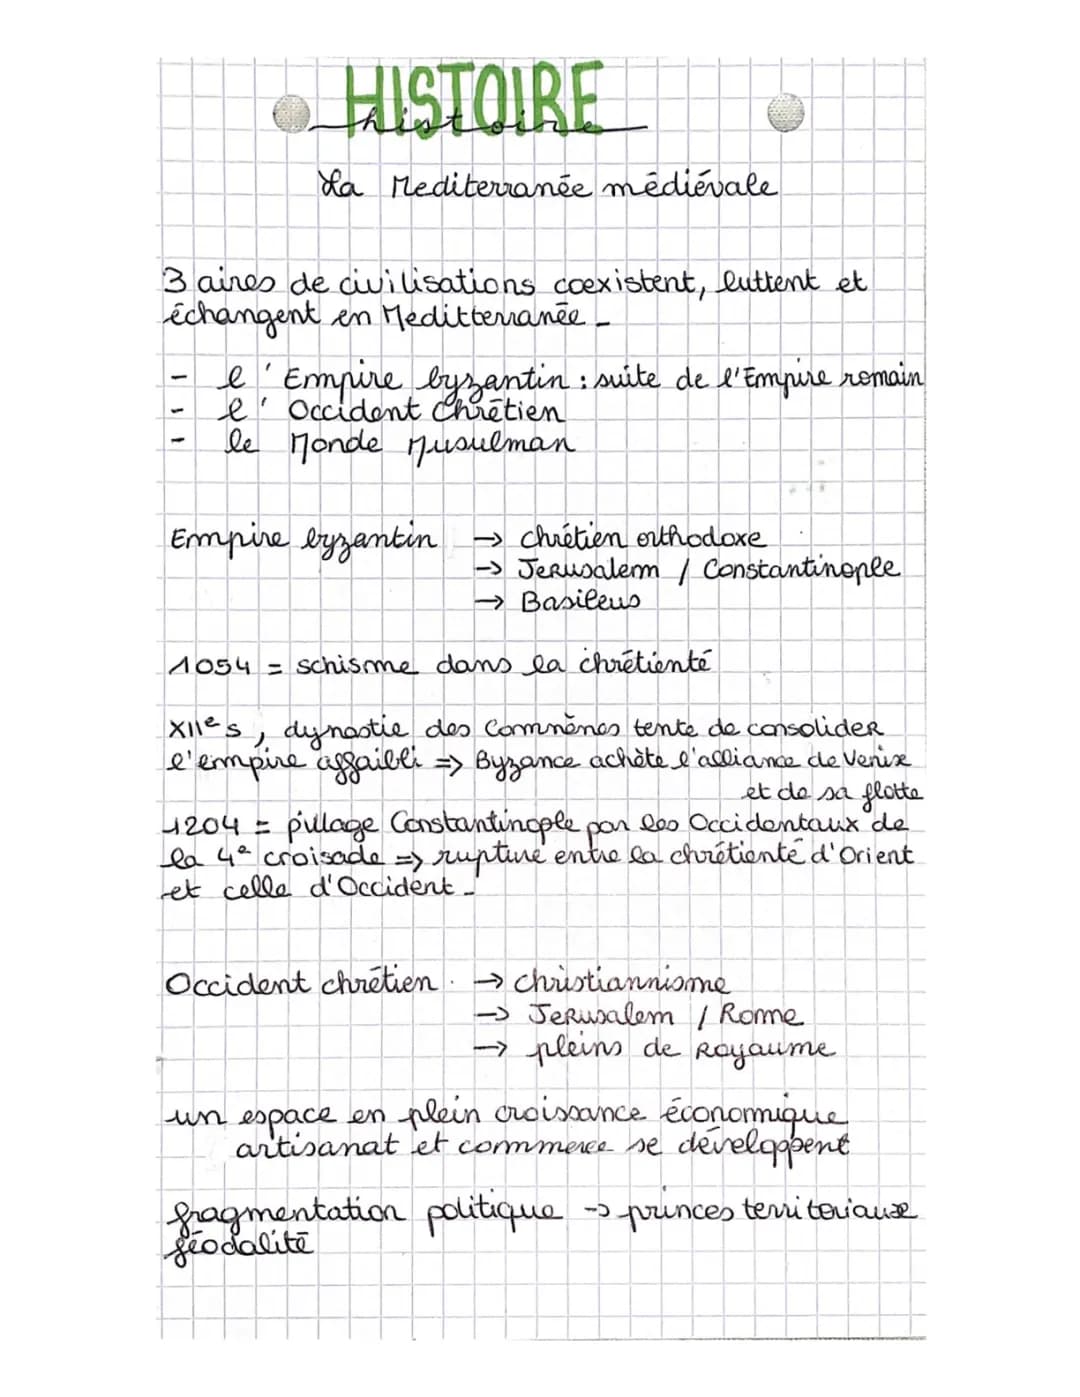 HISTOIRE
histoire
La Mediterranée médiévale
3 aires de civilisations coexistent, luttent et
échangent en Meditterranée -
- l'Empire byzantin : suite de l'Empire romain
- l'Occident Chrétien
- le Monde Musulman
Empire byzantin → chrétien orthodoxe
→ Jerusalem / Constantinople
→ Basileus
1054 = schisme dans la chrétienté
XIIe s, dynastie des Comnènes tente de consolider
l'empire affaibli => Byzance achète l'alliance de Venise
et de sa flotte
1204 = pillage Constantinople par les Occidentaux de
la 4e croisade => rupture entre la chrétienté d'Orient
et celle d'Occident -
Occident chrétien → christiannisme
→ Jerusalem / Rome
→ pleins de Royaume
un espace en plein croissance économique
artisanat et commerce se développent
fragmentation politique → princes territoriaux
féodalité